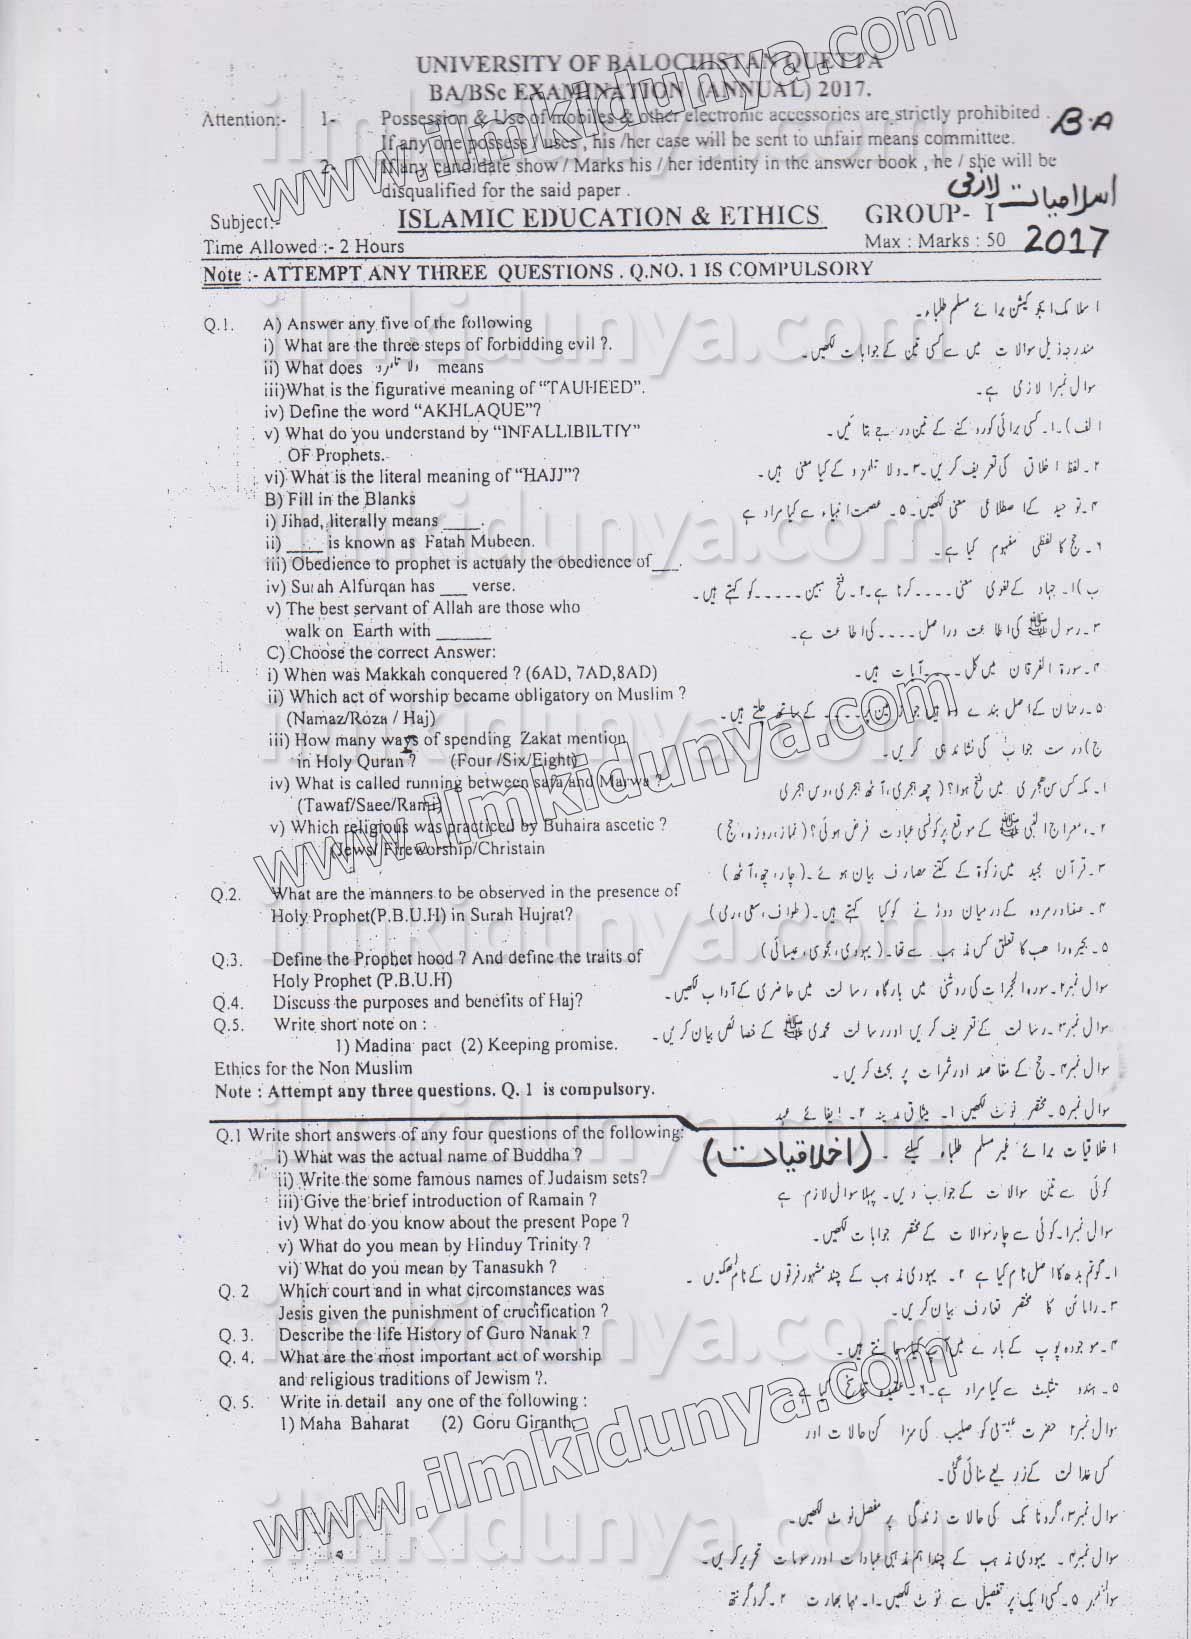 UNIVERSITY OF BALOCHISTAN QUETTA
BA/BSc EXAMINATION (ANNUAL) 2017.
Attention:- 1- Possession & Use of mobiles & other electronic accessories are strictly prohibited .
B.A
If any one possess / uses , his /her case will be sent to unfair means committee.
2- If any candidate show / Marks his / her identity in the answer book , he / she will be
disqualified for the said paper .
اسلامیات لازمی
Subject:- ISLAMIC EDUCATION & ETHICS GROUP- I
Time Allowed :- 2 Hours Max : Marks : 50 2017
Note :- ATTEMPT ANY THREE QUESTIONS . Q.NO. 1 IS COMPULSORY
Q.1. A) Answer any five of the following
i) What are the three steps of forbidding evil ?.
ii) What does means
iii)What is the figurative meaning of “TAUHEED”.
iv) Define the word “AKHLAQUE”?
v) What do you understand by “INFALLIBILTIY”
OF Prophets.
vi) What is the literal meaning of “HAJJ”?
B) Fill in the Blanks
i) Jihad, literally means ____.
ii) ____ is known as Fatah Mubeen.
iii) Obedience to prophet is actualy the obedience of___.
iv) Surah Alfurqan has ___ verse.
v) The best servant of Allah are those who
walk on Earth with ______
C) Choose the correct Answer:
i) When was Makkah conquered ? (6AD, 7AD,8AD)
ii) Which act of worship became obligatory on Muslim ?
(Namaz/Roza / Haj)
iii) How many ways of spending Zakat mention
in Holy Quran ? (Four /Six/Eight)
iv) What is called running between safa and Marwa ?
(Tawaf/Saee/Rami)
v) Which religious was practiced by Buhaira ascetic ?
(Jews/ Fireworship/Christain
Q.2. What are the manners to be observed in the presence of
Holy Prophet(P.B.U.H) in Surah Hujrat?
Q.3. Define the Prophet hood ? And define the traits of
Holy Prophet (P.B.U.H)
Q.4. Discuss the purposes and benefits of Haj?
Q.5. Write short note on :
1) Madina pact (2) Keeping promise.
Ethics for the Non Muslim
Note : Attempt any three questions. Q. 1 is compulsory.
اسلامک ایجوکیشن برائے مسلم طلباء۔
مندرجہ ذیل سوالات میں سے کسی تین کے جوابات لکھیں۔
سوال نمبر ا لازمی ہے۔
الف)۔۱۔کسی برائی کو روکنے کے تین درجے بتائیں۔
۲۔لفظ اخلاق کی تعریف کریں۔۳۔ولا تلمزو کے کیا معنی ہیں۔
۴۔توحید کے اصطلاحی معنی لکھیں۔۵۔ عصمت انبیاء سے کیا مراد ہے
۶۔حج کا لفظی مفہوم کیا ہے۔
ب)۱۔ جہاد کے لغوی معنی۔۔۔۔کرنا ہے۔۲۔فتح مبین ۔۔۔۔۔کو کہتے ہیں۔
۳۔رسولﷺ کی اطاعت دراصل۔۔۔۔کی اطاعت ہے۔
۴۔سورۃ الفرقان میں کل۔۔۔۔آیات ہیں۔
۵۔رحمان کے اصل بندے وہ ہیں جو زمین پر۔۔۔۔ کے ساتھ چلتے ہیں۔
ج)درست جواب کی نشاندہی کریں۔
۱۔مکہ کس سن ھجری میں فتح ہوا؟( چھ ہجری،آٹھ ہجری،دس ہجری
۲۔معراج النبیﷺ کے موقع پر کونسی عبادت فرض ہوئی؟(نماز،روزہ،حج)
۳۔قرآن مجید میں زکوٰۃ کے کتنے مصارف بیان ہوئے۔(چار،چھ،آٹھ)
۴۔صفا و مروہ کے درمیان دوڑنے کو کیا کہتے ہیں۔(طواف،سعی،رمی)
۵۔بحیرہ راھب کا تعلق کس مذہب سے تھا۔(یہودی،مجوسی،عیسائی)
سوال نمبر۲۔سورہ الحجرات کی روشنی میں بارگاہ رسالت میں حاضری کے آداب لکھیں۔
سوال نمبر۳۔رسالت کے تعریف کریں اور رسالت محمدیﷺ کے خصائص بیان کریں۔
سوال نمبر۴۔حج کے مقاصد اور ثمرات پر بحث کریں۔
سوال نمبر۵۔مختصر نوٹ لکھیں ۱۔ میثاق مدینہ ۲۔ ایفائے عہد
Q.1 Write short answers of any four questions of the following:
i) What was the actual name of Buddha ?
ii) Write the some famous names of Judaism sets?
iii) Give the brief introduction of Ramain ?
iv) What do you know about the present Pope ?
v) What do you mean by Hinduy Trinity ?
vi) What do you mean by Tanasukh ?
Q. 2 Which court and in what circomstances was
Jesis given the punishment of crucification ?
Q. 3. Describe the life History of Guro Nanak ?
Q. 4. What are the most important act of worship
and religious traditions of Jewism ?.
Q. 5. Write in detail any one of the following :
1) Maha Baharat (2) Goru Giranth.
اخلاقیات برائے غیر مسلم طلباء کیلئے ۔ (اخلاقیات)
کوئی سے تین سوالات کے جواب دیں۔ پہلا سوال لازم ہے
سوال نمبر۱۔کوئی سے چار سوالات کے مختصر جوابات لکھیں۔
۱۔گوتم بدھ کا اصل نام کیا ہے ۲۔ یہودی مذہب کے چند مشہور فرقوں کے نام لکھیں۔
۳۔رامائن کا مختصر تعارف بیان کریں۔
۴۔موجودہ پوپ کے بارے میں آپ کیا جانتے ہیں۔
۵۔ہندو تثلیث سے کیا مراد ہے۔۶۔عقیدہ تناسخ کیا ہے
سوال نمبر۲ حضرت عیسیٰ کو صلیب کی سزا کن حالات اور
کس عدالت کے ذریعے سنائی گئی۔
سوال نمبر۳،گرونانک کی حالات زندگی پر مفصل نوٹ لکھیں۔
سوال نمبر۴۔ یہودی مذہب کے چند اہم مذہبی عبادات اور رسومات تحریر کریں۔
سوال نمبر ۵۔کسی ایک پر تفصیل سے نوٹ لکھیں۔۱۔مہا بھارت ۲۔گروگرنتھ
www.ilmkidunya.com
www.ilmkidunya.com
www.ilmkidunya.com
ilmkidunya.com
ilmkidunya.com
ilmkidunya.com
ilmkidunya.com
ilmkidunya.com
ilmkidunya.com
ilmkidunya.com
ilmkidunya.com